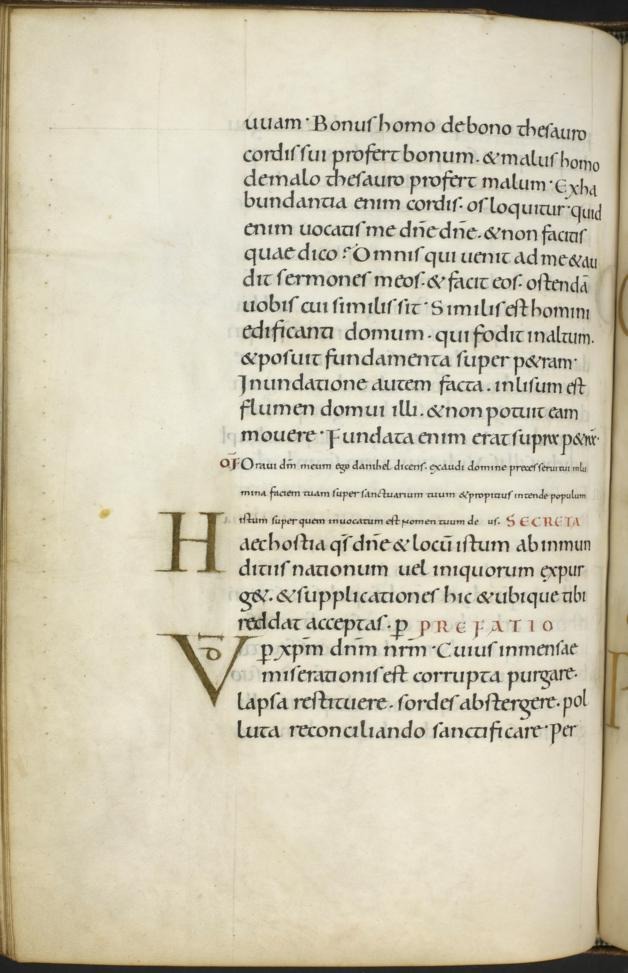 uuam · Bonus homo de bono thesauro
cordis sui profert bonum . & malus homo
de malo thesauro profert malum · Exha
bundantia enim cordis · os loquitur · quid
enim uocatis me dñe dñe . & non facitis
quae dico : Omnis qui uenit ad me & au
dit sermones meos . & facit eos . ostendā
uobis cui similis sit · Similis est homini
edificanti domum . qui fodit in altum .
& posuit fundamenta super p&ram ·
Inundatione autem facta . inlisum est
flumen domui illi . & non potuit eam
mouere · Fundata enim erat supra
Oraui dm̄ meum ego danihel dicens . exaudi domine preces serui tui inlu
mina faciem tuam super sanctuarium tuum & propitius intende populum
istum super quem inuocatum est nomen tuum de us . SECRETA
Haec hostia qs̄ dñe & locū istum ab inmun
ditiis nationum uel iniquorum expur
g& . & supplicationes hic & ubique tibi
reddat acceptas . p̄ PREFATIO
VD p xp̄m dnm̄ nrm̄ · Cuius inmensae
miserationis est corrupta purgare .
lapsa restituere . sordes abstergere . pol
luta reconciliando sanctificare · Per